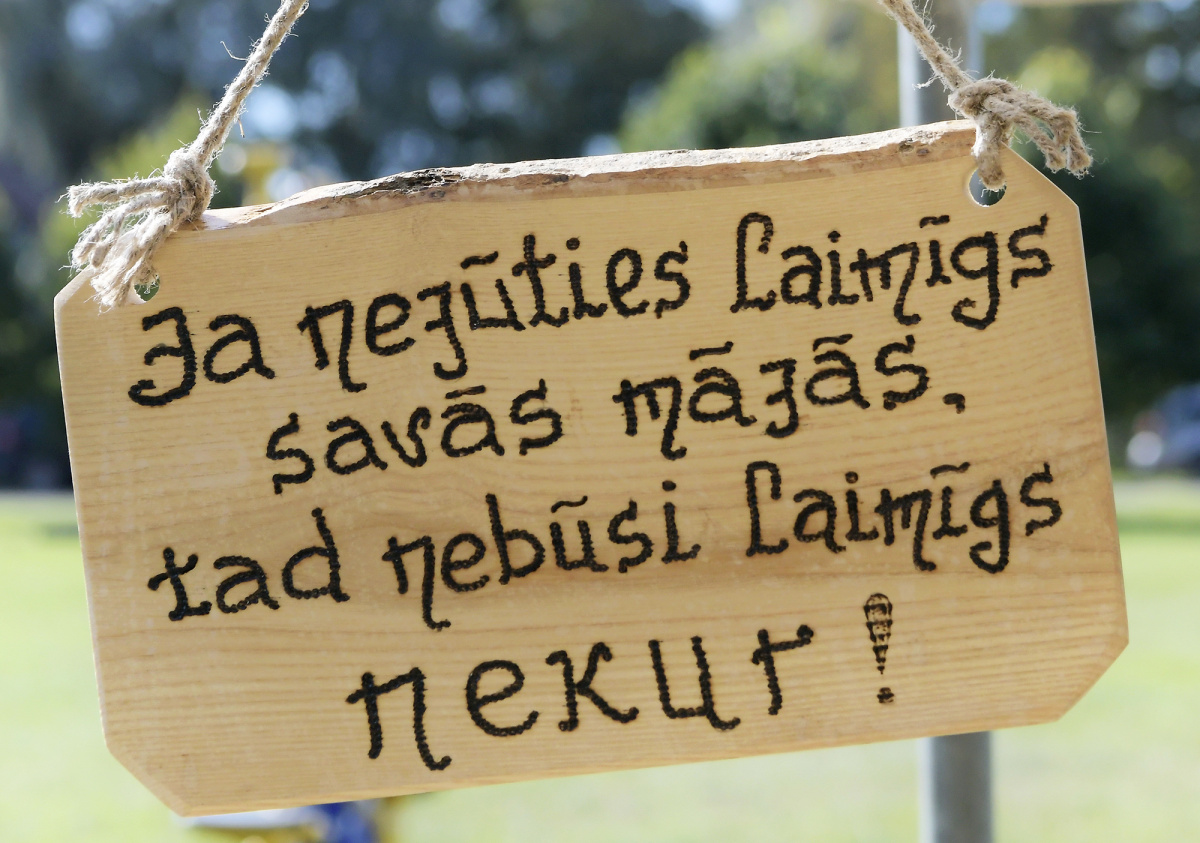 Ja nejūties laimīgs
savās mājās,
tad nebūsi laimīgs
nekur!